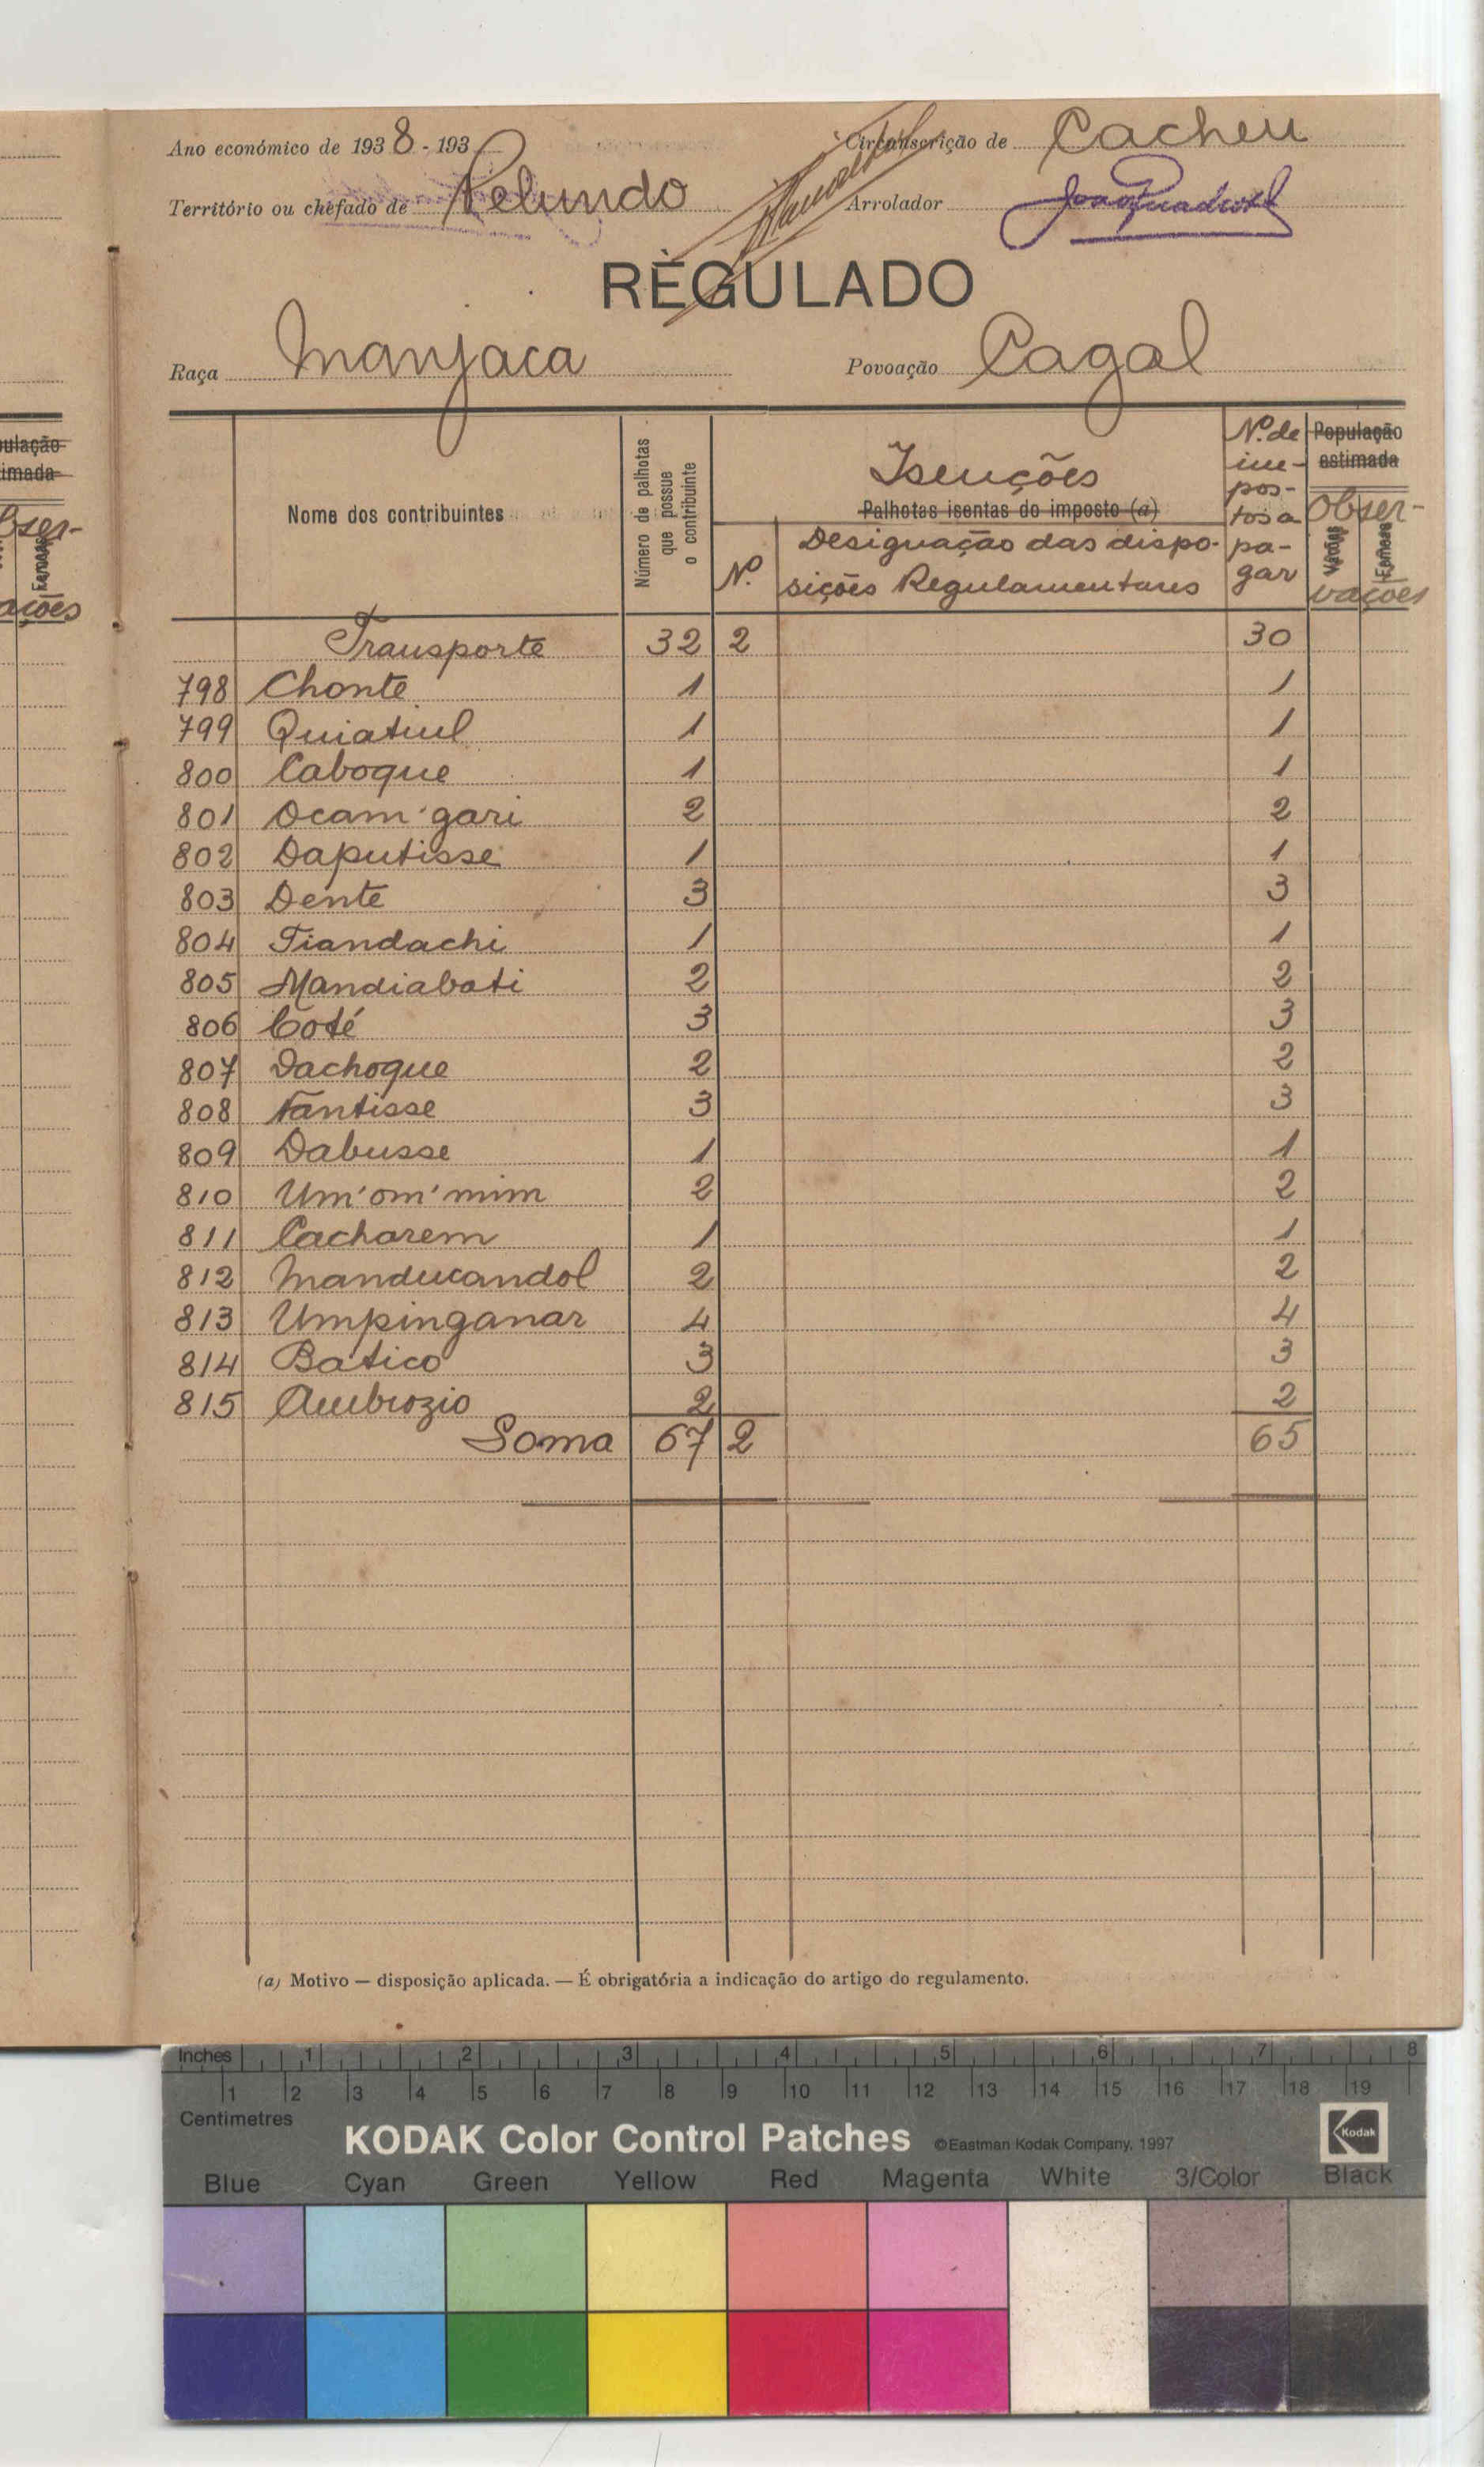 Ano económico de 1938-193
Circunscrição de Cacheu
Território ou chefado de Pelundo
Arrolador
REGULADO
Raça Manjaca
Povoação Cagal
Nome dos contribuintes
Número de palhotas que possue o contribuinte
Isenções
Palhotas isentas do imposto (a)
Nº
Designação das dispo-
sições Regulamentares
Nº de
im-
pos-
tos a
pa-
gar
População
estimada
Obser-
vações
Varões
Fêmeas
ulação
imada
bser-
ações
Fêmeas
Transporte 32 2 30
798 Chonte 1 1
799 Quiatiul 1 1
800 Caboque 1 1
801 Ocam'gari 2 2
802 Daputisse 1 1
803 Dente 3 3
804 Tiandachi 1 1
805 Mandiabati 2 2
806 Coté 3 3
807 Dachoque 2 2
808 Fantisse 3 3
809 Dabusse 1 1
810 Um'om'mim 2 2
811 Cacharem 1 1
812 Manducandol 2 2
813 Umpinganar 4 4
814 Batico 3 3
815 Ambrozio 2 2
Soma 67 2 65
(a) Motivo — disposição aplicada. — É obrigatória a indicação do artigo do regulamento.
Inches 1 2 3 4 5 6 7 8
1 2 3 4 5 6 7 8 9 10 11 12 13 14 15 16 17 18 19
Centimetres
KODAK Color Control Patches ©Eastman Kodak Company, 1997 Kodak
Blue Cyan Green Yellow Red Magenta White 3/Color Black